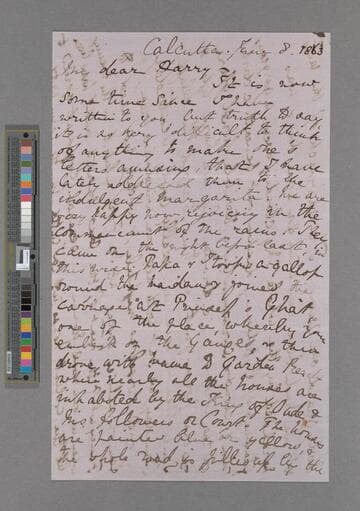 Calcutta. June 8. 1863
My dear Harry
It is now
some time since I have
written to you but truth to say
it is so very difficult to think
of anything to make one's
letters amusing, that I have
lately addressed them to the
indulgent Margaret. We are
very happy now rejoicing in the
commencement of the rains
came on the night before last
this Papa & I took a gallop
round the & joined the
carriage at Prinsep's Ghat
one of the place, whereby you
embark on the Ganges, & then
drove with Mama to Garden Reach
where nearly all the houses are
inhabited by the King of Oude &
his followers or Court. The houses
are painted blue or yellow, &
the whole road is filled up by the